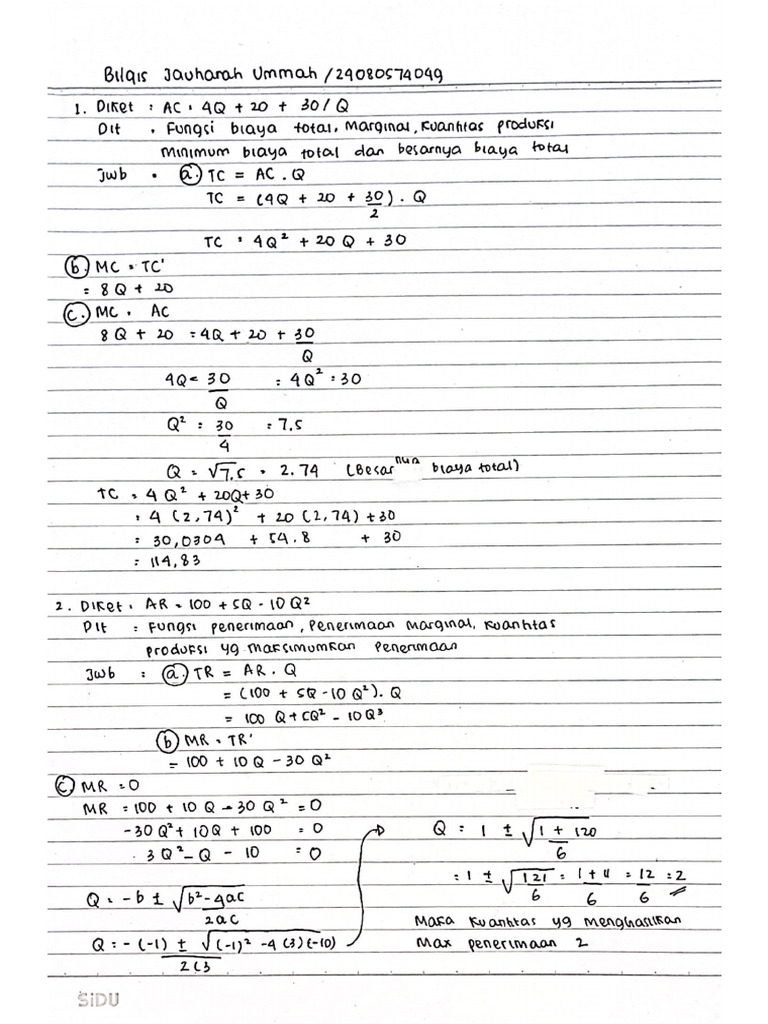 Bilqis Jauharah Ummah / 24080574049
1. Diket : AC = 4Q + 20 + 30/Q
Dit : Fungsi biaya total, Marginal, Kuantitas produksi
minimum biaya total dan besarnya biaya total
Jwb : (a.) TC = AC . Q
TC = (4Q + 20 + 30/2) . Q
TC = 4Q² + 20Q + 30
(b.) MC = TC'
= 8Q + 20
(c.) MC = AC
8Q + 20 = 4Q + 20 + 30/Q
4Q = 30/Q = 4Q² = 30
Q² = 30/4 = 7,5
Q = √7,5 = 2.74 (Besarnya biaya total)
TC = 4Q² + 20Q + 30
= 4 (2,74)² + 20 (2,74) + 30
= 30,0304 + 54.8 + 30
= 114,83
2. Diket : AR = 100 + 5Q - 10Q²
Dit : Fungsi penerimaan, Penerimaan Marginal, Kuantitas
produksi yg maksimumkan penerimaan
Jwb : (a.) TR = AR . Q
= (100 + 5Q - 10Q²) . Q
= 100Q + 5Q² - 10Q³
(b) MR = TR'
= 100 + 10Q - 30Q²
(c.) MR = 0
MR = 100 + 10Q - 30Q² = 0
-30Q² + 10Q + 100 = 0
3Q² - Q - 10 = 0
Q = -b ± √b² - 4ac / 2ac
Q = -(-1) ± √(-1)² - 4(3)(-10) / 2(3
Q = 1 ± √1 + 120 / 6
= 1 ± √121 / 6 = 1 + 11 / 6 = 12 / 6 = 2
Maka kuantitas yg menghasilkan
Max penerimaan 2
SiDU